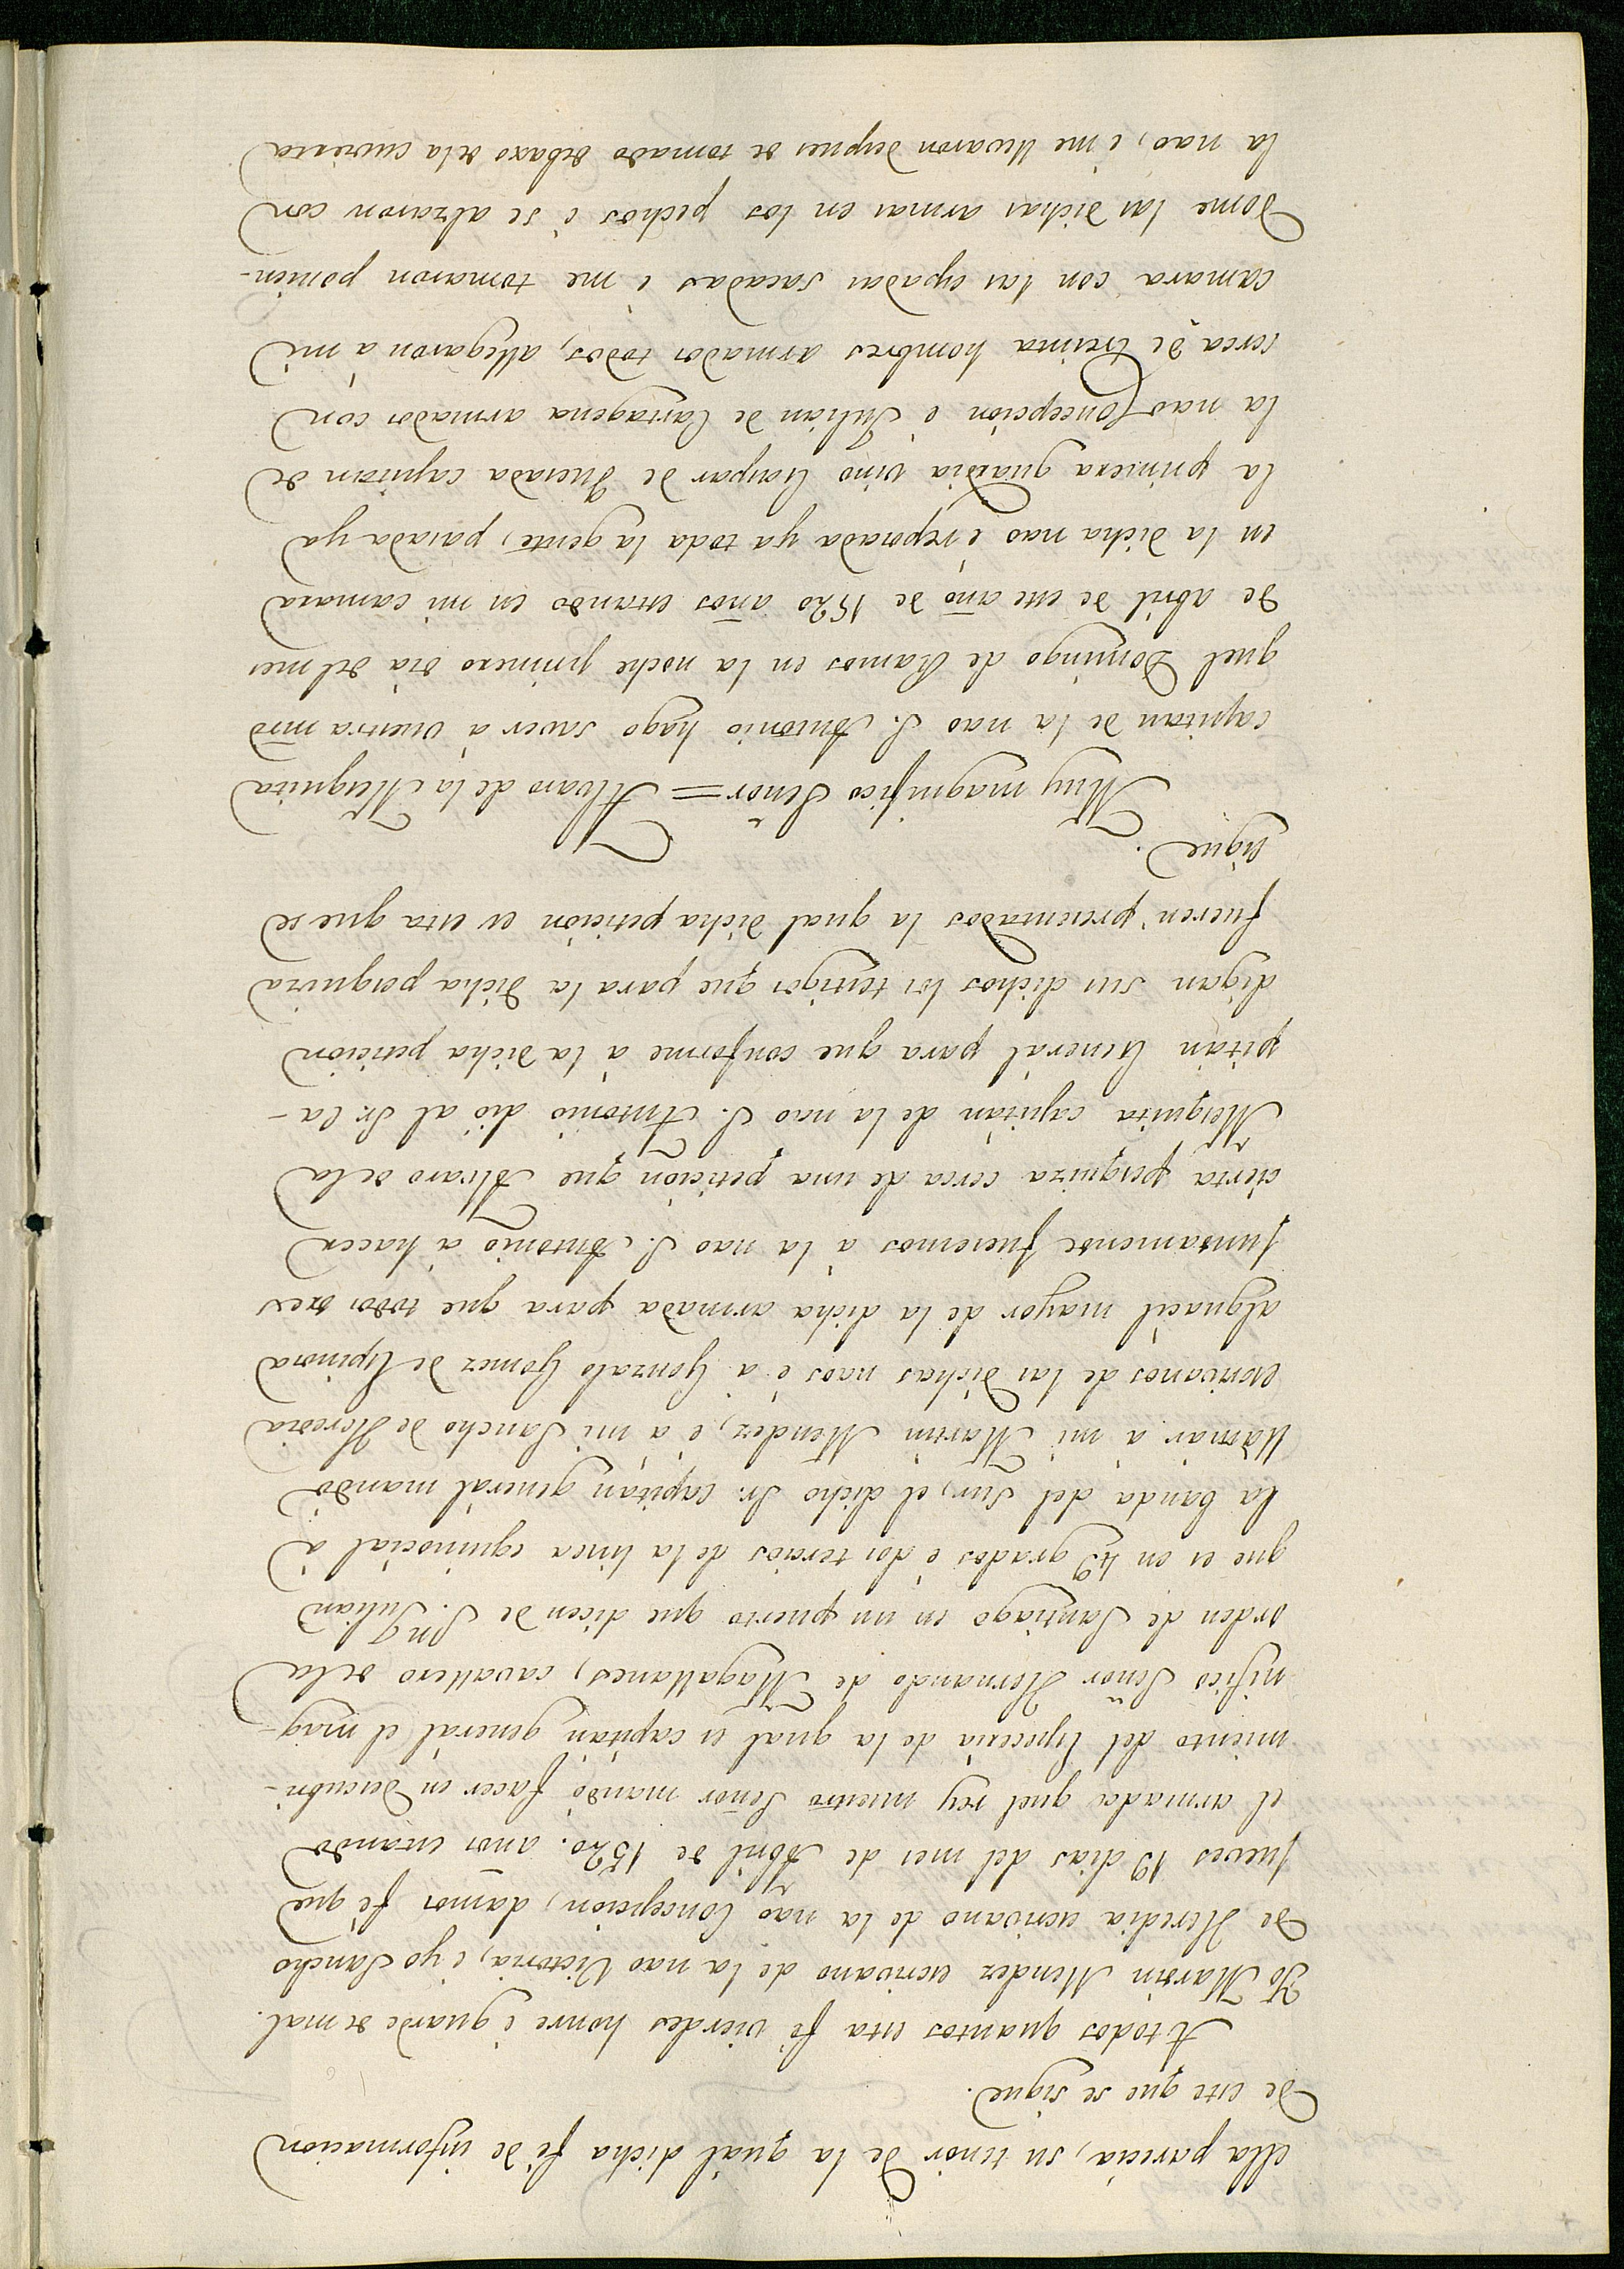 ella parecia, su tenor de la qual dicha fé de informacion
de este que se sigue.
A todos quantos esta fé vierdes honre é guarde de mal.
Yo Martin Mendez escrivano de la nao Victoria, é yo Sancho
de Heredia escrivano de la nao Concepcion, damos fé que
jueves 19 dias del mes de Abril de 1520. años estando
el armada quel rey nuestro Señor mandó facer en descubri-
miento del Especeria de la qual es capitan general el mag-
nifico Señor Hernando de Magallanes, cavallero de la
orden de Santiago en un puerto que dicen de S. Julian
que es en 49 grados é dos tercios de la linea equinocial á
la banda del Sur, el dicho Sr. capitan general mandó
llamar á mi Martin Mendez, é á mi Sancho de Heredia
escrivanos de las dichas naos é á Gonzalo Gomez de Espinosa
alguacil mayor de la dicha armada para que todos tres
juntamente fuesemos á la nao S. Antonio á hacer
cierta pesquiza cerca de una peticion que Alvaro de la
Mesquita capitan de la nao S. Antonio dió al Sr. Ca-
pitan General para que conforme á la dicha peticion
digan sus dichos los testigos que para la dicha pesquisa
fueren presentados la qual dicha peticion es esta que se
sigue.
Muy magnifico Señor = Alvaro de la Mesquita
capitan de la nao S. Antonio hago saver á vuestra mrd
quel Domingo de Ramos en la noche primero dia del mes
de abril de este año de 1520 años estando en mi camara
en la dicha nao é reposada ya toda la gente, pasada ya
la primera guardia vino Gaspar de Quesada capitan de
la nao Concepcion é Julian de Cartagena armados con
cerca de treinta hombres armados todos, allegaron á mi
camara con las espadas sacadas é me tomaron ponien-
dome las dichas armas en los pechos é se alzaron con
la nao, é me llevaron despues de tomado debaxo de la cuvierta